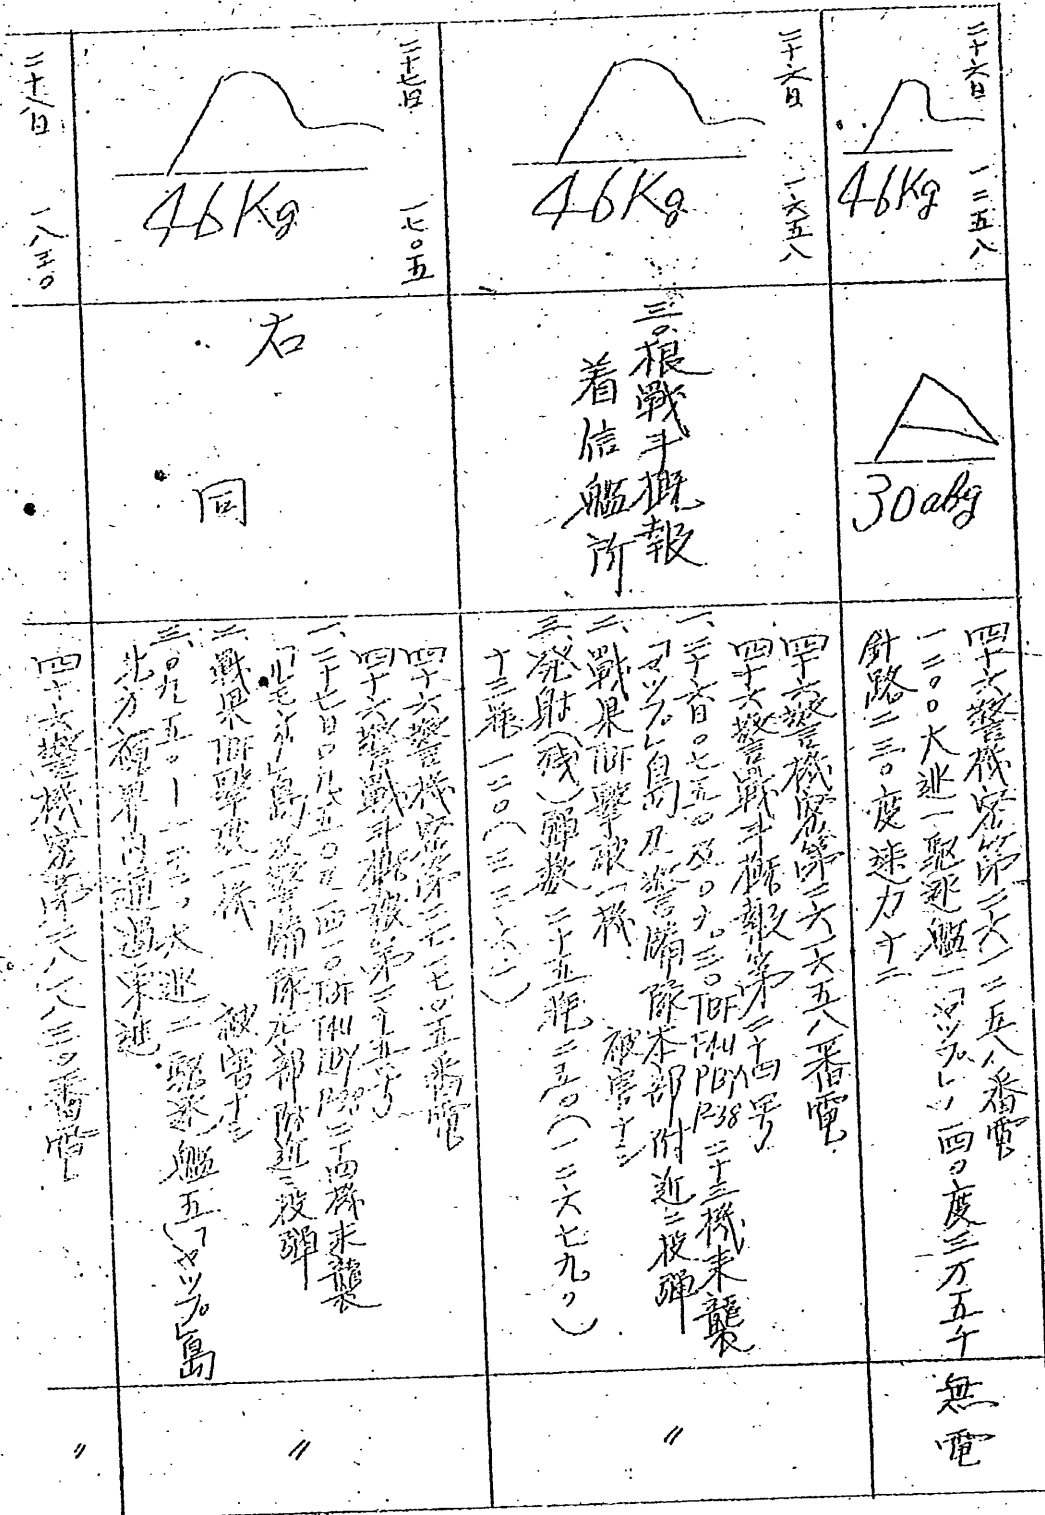 二十六日 一二五八
46Kg
30abg
四十六警機密第二六一二五八番電
一二〇〇大巡一駆逐艦一「マツプレ」四〇度三万五千
針路二三〇度速力十二
無電
二十六日 一六五八
46Kg
三〇根戦斗概報
着信艦所
四十六警機密第二六一六五八番電
四十六警戦斗概報第二十四号
一、二十六日〇七五〇及〇九三〇TBF F4U PBY P-38二十三機来襲
「マツプレ」島及警備隊本部附近ニ投弾
二、戦果TBF撃破一機 被害ナシ
三、発射(残)弾数 二十五粍二五〇(一二六七九〇)
十三粍一二〇(三三六一)
〃
二十七日 一七〇五
46Kg
右
同
四十六警機密第二七一七〇五番電
四十六警戦斗概報第二十五号
一、二十七日〇九五〇及一四一〇TBF F4U PBY P-38二十四機来襲
島及警備隊本部附近ニ投弾
二、戦果TBF撃破一機 被害ナシ
三、〇九五〇ー一三三〇大巡二駆逐艦五「マツプレ」島
北方視界内通過東進
〃
二十八日 一八三〇
四十六警機密第二八一八三〇番電
〃